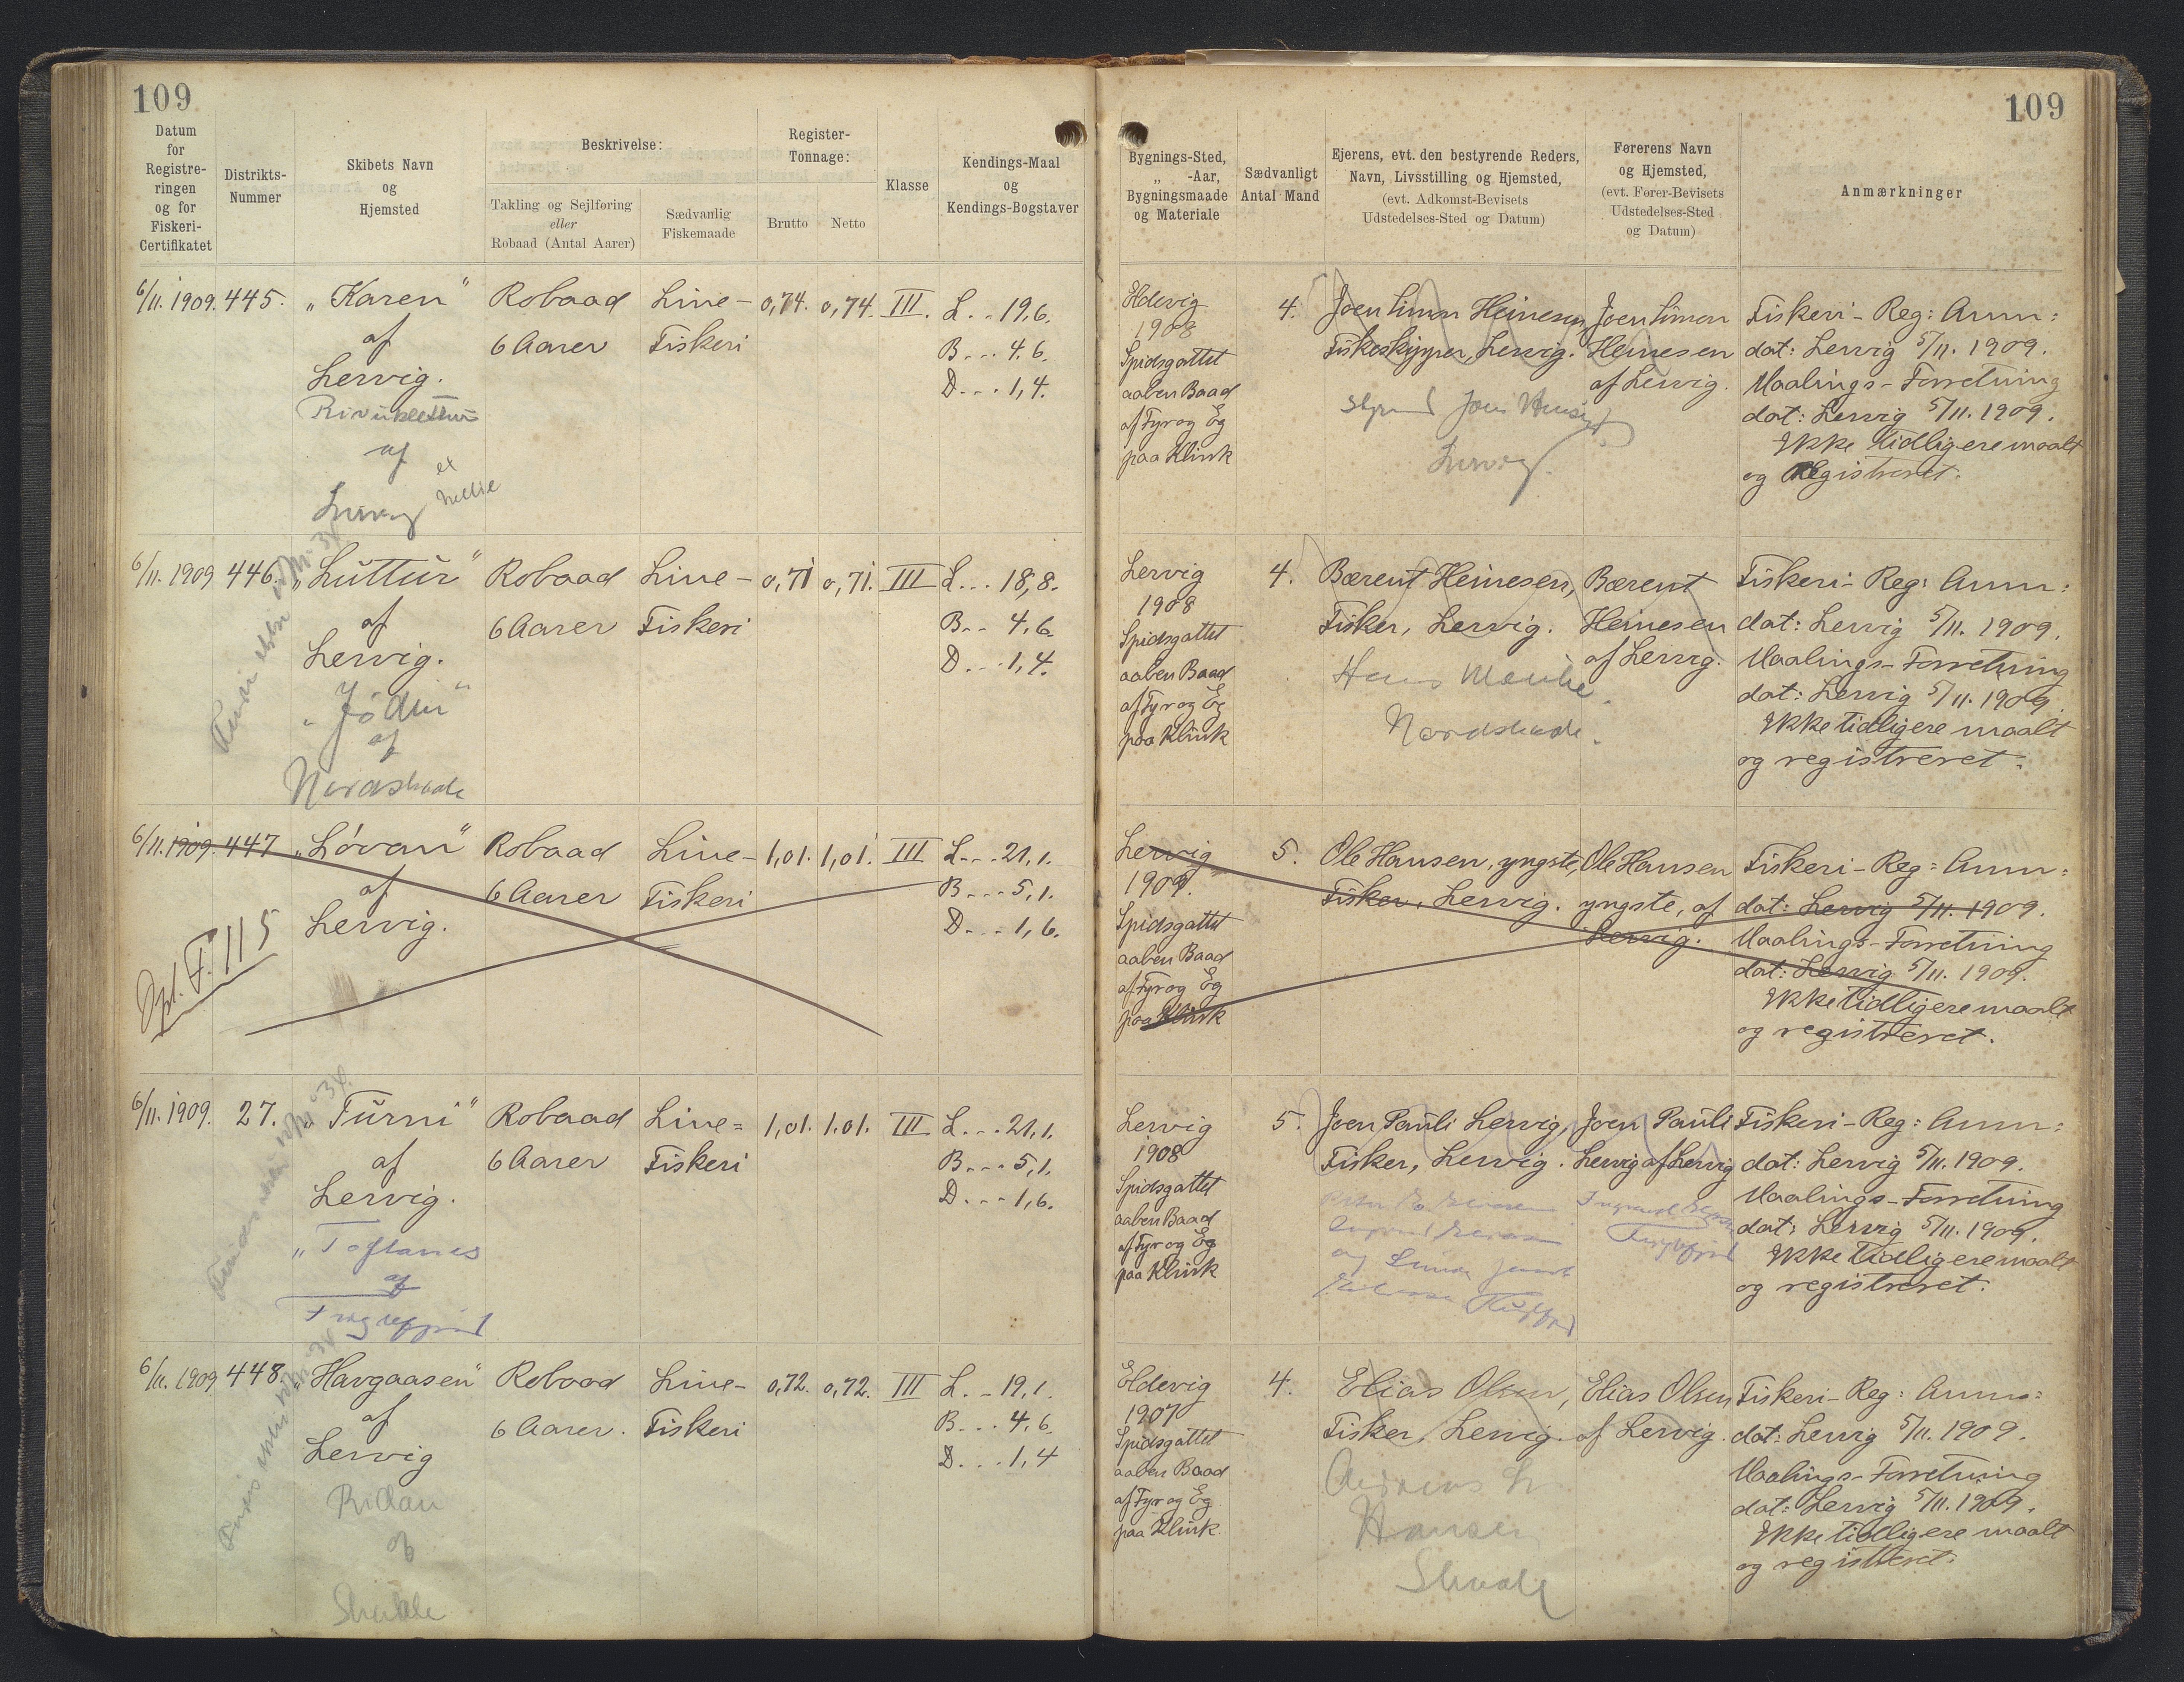 109
109
Datum
for
Registre-
ringen
og for
Fiskeri-
Certifikatet
Distrikts-
Nummer
Skibets Navn
og
Hjemsted
Beskrivelse:
Takling og Sejlføring
eller
Robaad (Antal Aarer)
Sædvanlig
Fiskemaade
Register-
Tonnage:
Brutto Netto
Klasse
Kendings-Maal
og
Kendings-Bogstaver
Bygnings-Sted,
„ -Aar,
Bygningsmaade
og Materiale
Sædvanligt
Antal Mand
Ejerens, evt. den bestyrende Reders,
Navn, Livsstilling og Hjemsted,
(evt. Adkomst-Bevisets
Udstedelses-Sted og Datum)
Førerens Navn
og Hjemsted,
(evt. Fører-Bevisets
Udstedelses-Sted
og Datum)
Anmærkninger
6/11. 1909. 445.
„Karen"
af
Lervig.
af
Lervig
ex
Nellie
Robaad
6 Aarer
Line-
Fiskeri
0,74. 0,74. III.
L... 19,6.
B... 4,6.
D... 1,4.
Eldevig
1908
Spidsgattet
aaben Baad
af Fyr og Eg
paa Klink
4.
Joen Simon Heinesen,
Fiskeskipper, Lervig.
Lervig.
Joen Simon
Heinesen
af Lervig.
Fiskeri-Reg: Anm:
dat: Lervig 5/11. 1909.
Maalings-Forretning
dat: Lervig 5/11. 1909.
Ikke tidligere maalt
og Registreret.
6/11. 1909 446.
„Luttur"
af
Lervig.
af
Robaad
6 Aarer
Line-
Fiskeri
0,71 0,71. III
L... 18,8.
B... 4,6.
D... 1,4.
Lervig
1908
Spidsgattet
aaben Baad
af Fyr og Eg
paa Klink
4.
Bærent Heinesen,
Fisker, Lervig.
Bærent
Heinesen
af Lervig.
Fiskeri-Reg: Anm:
dat: Lervig 5/11. 1909.
Maalings-Forretning
dat: Lervig 5/11. 1909.
Ikke tidligere maalt
og registreret.
6/11. 1909. 447
„Lóvan"
af
Lervig.
F. 115
Robaad
6 Aarer
Line-
Fiskeri
1,01. 1,01. III
L... 21,1.
B... 5,1.
D... 1,6.
Lervig
1909.
Spidsgattet
aaben Baad
af Fyr og Eg
paa Klink
5.
Ole Hansen, yngste,
Fisker, Lervig.
Ole Hansen
yngste, af
Lervig.
Fiskeri-Reg: Anm:
dat: Lervig 5/11. 1909.
Maalings-Forretning
dat: Lervig 5/11. 1909.
Ikke tidligere maalt
og registreret.
6/11. 1909. 27.
„Turni"
af
Lervig.
„Toftanes
af
Robaad
6 Aarer
Line=
Fiskeri
1,01. 1.01. III.
L... 21,1.
B... 5,1.
D... 1,6.
Lervig
1908
Spidsgattet
aaben Baad
af Fyr og Eg
paa Klink
5.
Joen Pauli Lervig,
Fisker, Lervig.
Joen Pauli
Lervig af Lervig
Fiskeri-Reg: Anm:
dat: Lervig 5/11. 1909.
Maalings-Forretning
dat: Lervig 5/11. 1909.
Ikke tidligere maalt
og registreret.
6/11. 1909 448.
„Havgaasen"
af
Lervig
Ritan
af
Robaad
6 Aarer.
Line-
Fiskeri
0,72. 0,72. III
L... 19,1.
B... 4,6.
D... 1,4
Eldevig
1907
Spidsgattet
aaben Baad
af Fyr og Eg
paa Klink.
4.
Elias Olsen,
Fisker, Lervig.
Hansen
Elias Olsen
af Lervig.
Fiskeri-Reg: Anm:
dat: Lervig 5/11. 1909.
Maalings-Forretning
dat: Lervig 5/11. 1909.
Ikke tidligere maalt
og registreret.